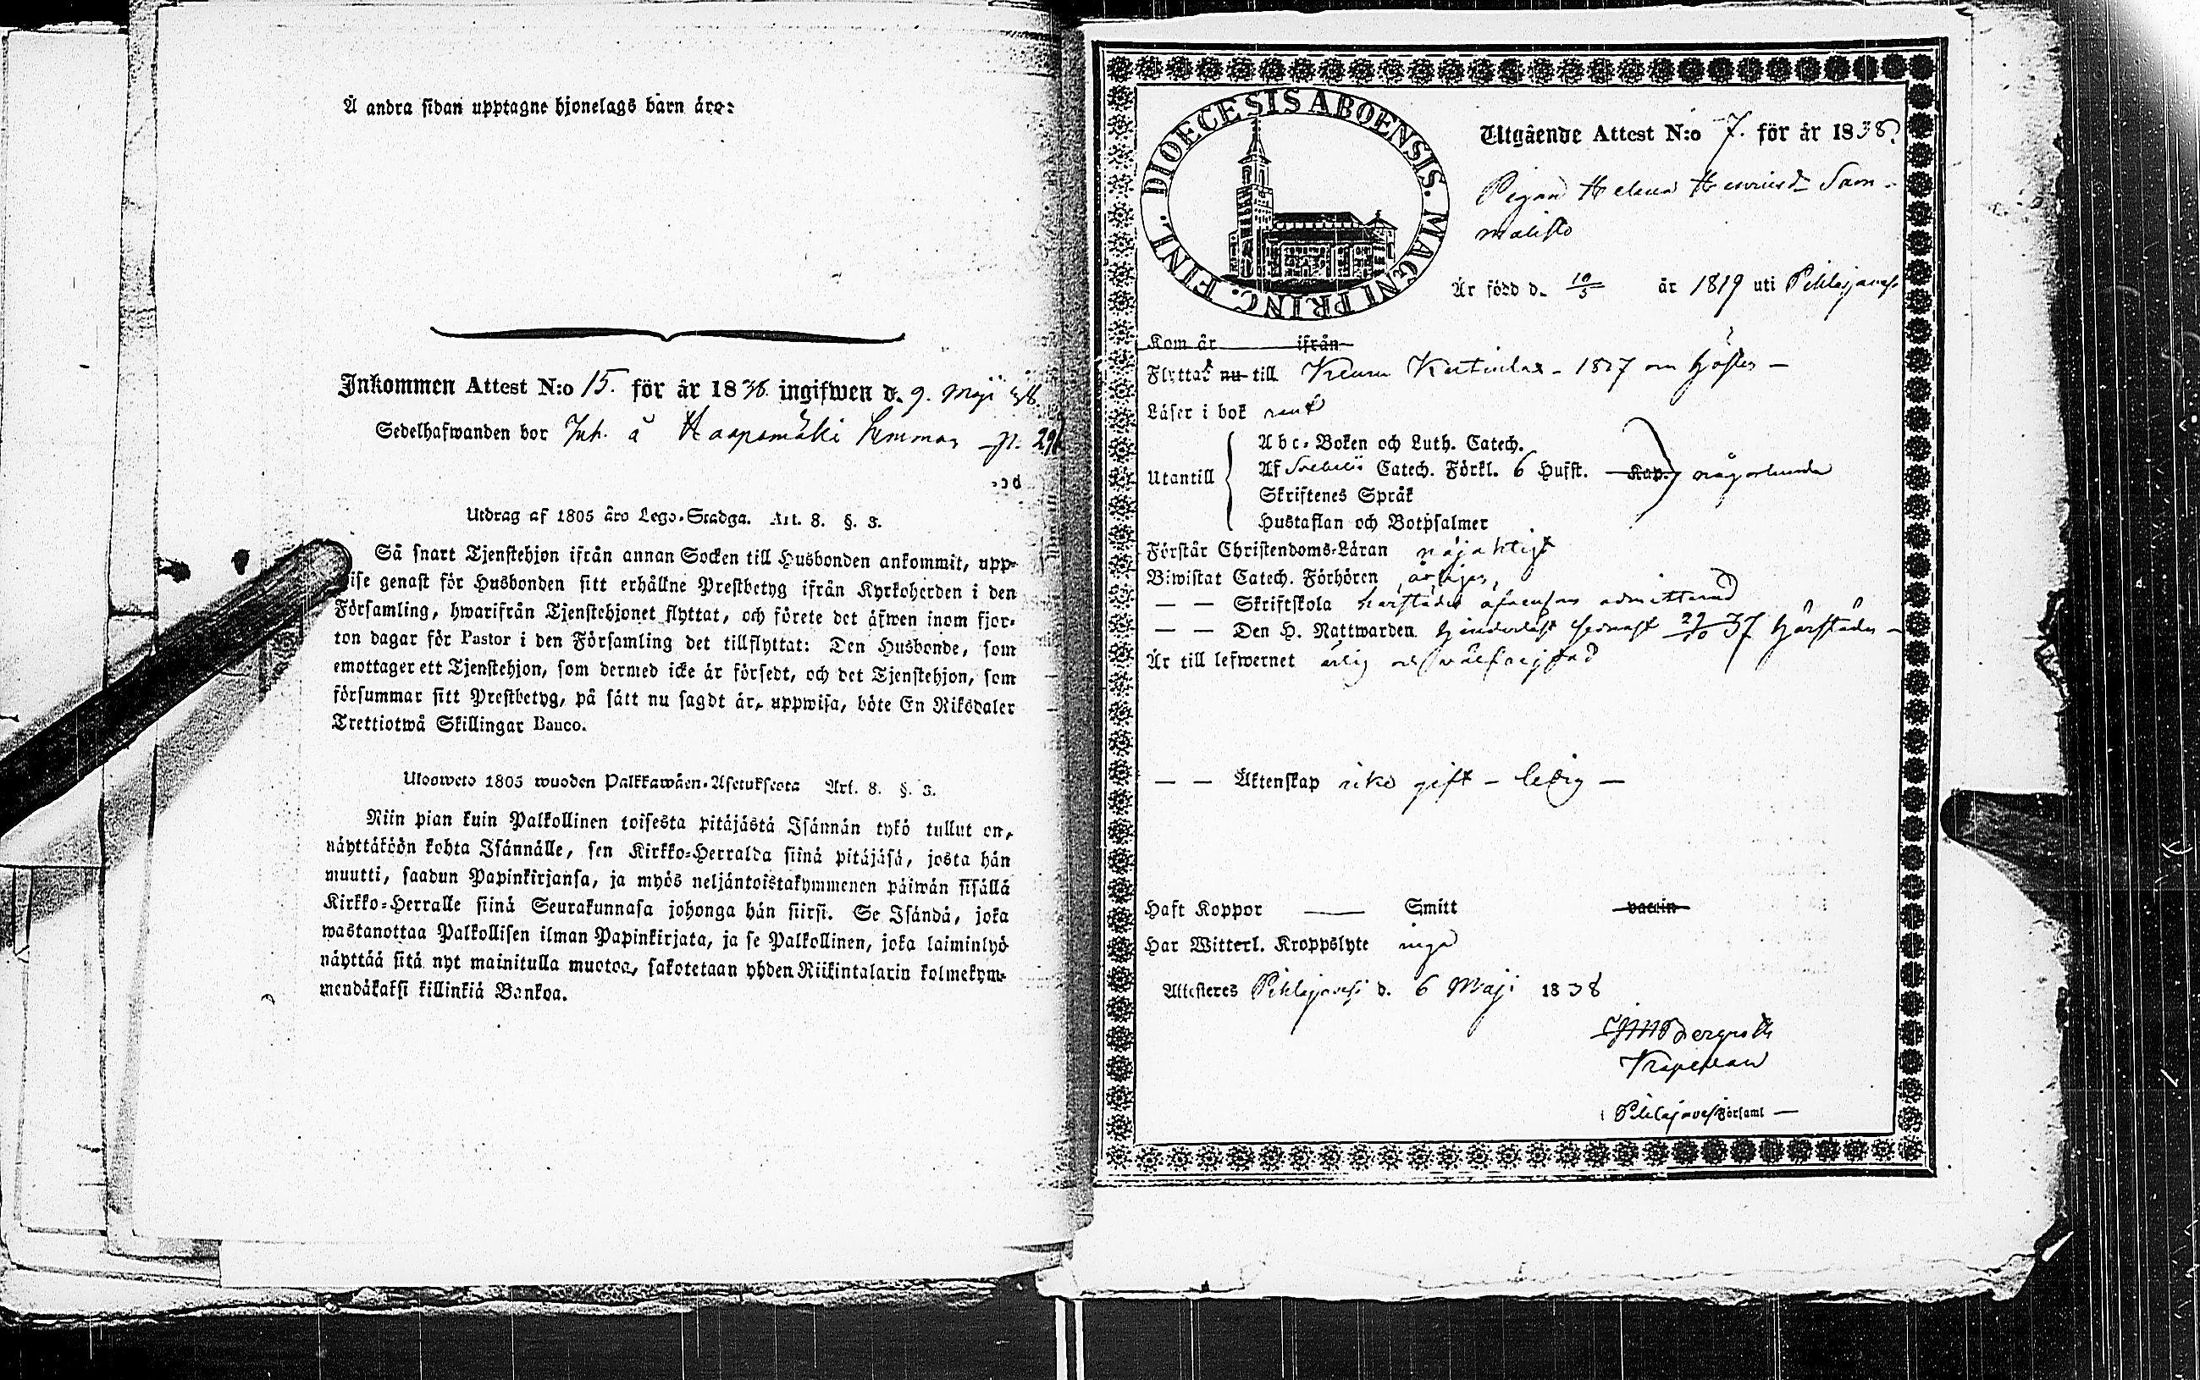 Å andra sidan upptagne hjonelags barn äro:
Inkommen Attest N:o 15. för år 1838 ingifwen d. 9. Maji 38
Sedelhafwanden bor Inh. å Haapamäki
Utdrag af 1805 års Lego-Stadga. Art. 8. §. 3.
Så snart Tjenstehjon ifrån annan Socken till Husbonden ankommit, upp-
wise genast för Husbonden sitt erhållne Prestbetyg ifrån Kyrkoherden i den
Församling, hwarifrån Tjenstehjonet flyttat, och förete det äfwen inom fjor-
ton dagar för Pastor i den Församling det tillflyttat: Den Husbonde, som
emottager ett Tjenstehjon, som dermed icke är försedt, och det Tjenstehjon, som
försummar sitt Prestbetyg, på sätt nu sagdt är, uppwisa, böte En Riksdaler
Trettiotwå Skillingar Banco.
Ulosweto 1805 wuoden Palkkawäen-Asetuksesta Art. 8. §. 3.
Niin pian kuin Palkollinen toisesta pitäjästä Isännän tykö tullut on,
näyttäköön kohta Isännälle, sen Kirkko-Herralda siinä pitäjäsä, josta hän
muutti, saadun Papinkirjansa, ja myös neljäntoistakymmenen päiwän sisällä
Kirkko-Herralle siinä Seurakunnasa johonga hän siirsi. Se Isändä, joka
wastanottaa Palkollisen ilman Papinkirjata, ja se Palkollinen, joka laiminlyö
näyttää sitä nyt mainitulla muotoa, sakotetaan yhden Riikintalarin kolmekym-
mendäkaksi killinkiä Bankoa.
DIOECESIS ABOENSIS. MAGNI PRINC. FINL.
Utgående Attest N:o 7. för år 1838.
Pigan Helena Henricsdr Sam-
malisto
Är född d. 10/3 år 1819 uti Pihlajavesi
Kom år ifrån
Flyttat nu till Keuru 1837 om hösten –
Läser i bok rent
Abc-Boken och Luth. Catech.
Utantill Af Svebelii Catech. Förkl. 6 Hufst. Kap. någorlunda
Skriftenes Språk
Hustaflan och Botpsalmer
Förstår Christendoms-Läran nöjaktigt
Biwistat Catech. Förhören årligen,
— — Skriftskola härstädes admitterad
— — Den H. Nattwarden senast 29/10 37 härstädes –
Är till lefwernet ärlig och wälfrejdad
— — Äktenskap icke gift – ledig –
Haft Koppor — Smitt vaccin
Har Witterl. Kroppslyte inga
Attesteres Pihlajavesi d. 6 Maji 1838
Bergroth
Kapellan
i Pihlajavesi Församl –